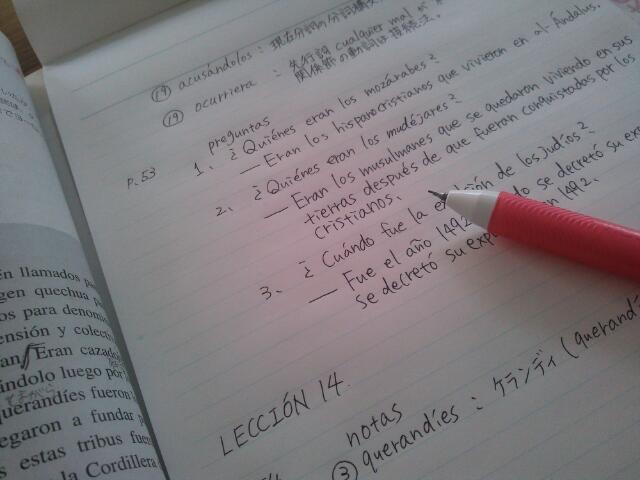 (17) acusándolos : 現在分詞の分詞構文
(19) ocurriera : 先行詞 cualquier mal が
関係節の動詞は接続法。
preguntas
p.53 1. ¿Quiénes eran los mozárabes?
— Eran los hispanocristianos que vivieron en al-Ándalus.
2. ¿Quiénes eran los mudéjares?
— Eran los musulmanes que se quedaron viviendo en sus
tierras después de que fueran conquistadas por los
cristianos.
3. ¿Cuándo fue la de los judíos?
— Fue el año 1492 se decretó su
se decretó su en 1492.
LECCIÓN 14.
notas
③ querandíes : ケランディ (querandí
én llamados
gen quechua
os para denom
ensión y colectiv
an. Eran cazado
índolo luego por
querandíes fueron
egaron a fundar
s estas tribus fue
la Cordillera